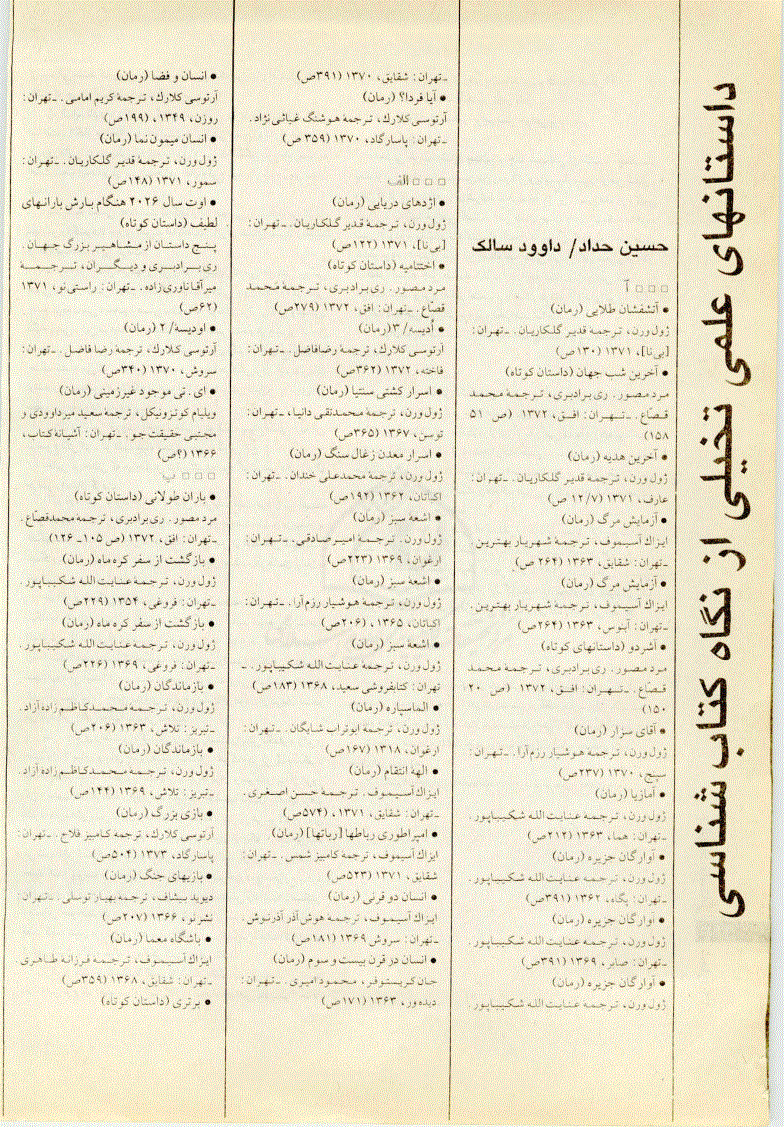 داستانهای علمی تخیلی از نگاه کتاب شناسی
حسین حداد/ داوود سالک
□ □ □ آ
● آتشفشان طلایی (رمان)
ژول ورن، ترجمه قدیر گلکاریان. ـ تهران:
[بی‌نا]، ۱۳۷۱ (۱۳۰ص)
● آخرین شب جهان (داستان کوتاه)
مرد مصور. ری برادبری، ترجمـهٔ محمد
قصّاع. ـ تهـران: افـق، ۱۳۷۲ (ص ۵۱
۱۵۸)
● آخرین هدیه (رمان)
ژول ورن، ترجمه قدیر گلکاریان. ـ تهران:
عارف، ۱۳۷۱ (۱۲/۷ ص)
● آزمایش مرگ (رمان)
ایزاک آسیموف، ترجمـهٔ شهریار بهترین.
ـ تهران: شقایق، ۱۳۶۳ (۲۶۴ ص)
● آزمایش مرگ (رمان)
ایزاک آسیموف، ترجمـهٔ شهریار بهترین.
ـ تهران: آبوس، ۱۳۶۳ (۲۶۴ص)
● آشردو (داستانهای کوتاه)
مرد مصور. ری برادبری، ترجمـهٔ محمد
قصّاع. ـ تهـران: افـق، ۱۳۷۲ (ص ۲۰
۱۵۰)
● آقای سزار (رمان)
ژول ورن، ترجمه هوشیار رزم‌آرا. ـ تهران:
سپج، ۱۳۷۰ (۲۳۷ص)
● آمازیا (رمان)
ژول ورن، ترجمهٔ عنایت الله شکیباپور.
ـ تهران: هما، ۱۳۶۳ (۲۱۲ص)
● آوارگان جزیره (رمان)
ژول ورن، ترجمهٔ عنایت الله شکیباپور.
ـ تهران: پگاه، ۱۳۶۲ (۳۹۱ص)
● آوارگان جزیره (رمان)
ژول ورن، ترجمهٔ عنایت الله شکیباپور.
ـ تهران: صابر، ۱۳۶۹ (۳۹۱ص)
● آوارگان جزیره (رمان)
ژول ورن، ترجمهٔ عنایت الله شکیباپور.
ـ تهران: شقایق، ۱۳۷۰ (۳۹۱ص)
● آیا فردا؟ (رمان)
آرتوسی کلارک، ترجمهٔ هوشنگ غیاثی‌نژاد.
ـ تهران: پاسارگاد، ۱۳۷۰ (۳۵۹ ص)
□ □ □ الف
● اژدهای دریایی (رمان)
ژول ورن، ترجمه قدیر گلکاریان. ـ تهران:
[بی‌نا]، ۱۳۷۱ (۱۲۲ص)
● اختتامیه (داستان کوتاه)
مرد مصور. ری برادبری، ترجمهٔ محمد
قصّاع. ـ تهران: افق، ۱۳۷۲ (۲۷۹ص)
● اُدیسه/ ۳(رمان)
آرتوسی کلارک، ترجمهٔ رضافاضل. ـ تهران:
فاخته، ۱۳۷۲ (۳۶۲ص)
● اسرار کشتی سنتیا (رمان)
ژول ورن، ترجمهٔ محمدتقی دانیا، ـ تهران:
توسن، ۱۳۶۷ (۳۶۵ص)
● اسرار معدن زغال سنگ (رمان)
ژول ورن، ترجمهٔ محمدعلی خندان. ـ تهران:
اکباتان، ۱۳۶۲ (۱۹۲ص)
● اشعهٔ سبز (رمان)
ژول ورن. ترجمهٔ امیرصادقی. ـ تهران:
ارغوان، ۱۳۶۹ (۲۲۳ص)
● اشعهٔ سبز (رمان)
ژول ورن، ترجمهٔ هوشیار رزم‌آرا. ـ تهران:
اکباتان، ۱۳۶۵، (۲۰۶ص)
● اشعهٔ سبز (رمان)
ژول ورن، ترجمهٔ عنایت الله شکیباپور. ـ
تهران: کتابفروشی سعید، ۱۳۶۸ (۱۸۳ص)
● الماسپاره (رمان)
ژول ورن، ترجمه ابوتراب شایگان. ـ تهران:
ارغوان، ۱۳۱۸ (۱۶۷ص)
● الههٔ انتقام (رمان)
ایزاک آسیموف. ترجمهٔ حسن اصغری.
ـ تهران: شقایق، ۱۳۷۱، (۵۷۴ص)
● امپراطوری رباطها [رباتها] (رمان)
ایزاک آسیموف، ترجمه کامبیز شمس. ـ تهران:
شقایق، ۱۳۷۱ (۵۲۳ص)
● انسان دو قرنی (رمان)
ایزاک آسیموف، ترجمهٔ هوش‌آذر آذرنوش.
ـ تهران: سروش ۱۳۶۹ (۱۸۱ص)
● انسان در قرن بیست و سوم (رمان)
جان کریستوفر، محمود امیری. ـ تهران:
دیده‌ور، ۱۳۶۳ (۱۷۱ص)
● انسان و فضا (رمان)
آرتوسی کلارک، ترجمهٔ کریم امامی. ـ تهران:
روزن، ۱۳۴۹، (۱۹۹ص)
● انسان میمون نما (رمان)
ژول ورن، ترجمهٔ قدیر گلکاریان. ـ تهران:
سمور، ۱۳۷۱ (۱۴۸ص)
● اوت سال ۲۰۲۶ هنگام بارش بارانهای
لطیف (داستان کوتاه)
پنـج داستان از مشاهیـر بزرگ جهـان
ری بـرادبـری و دیگـران، تـرجمــهٔ
میرآقاناوری‌زاده. ـ تهران: راستی‌نو، ۱۳۷۱
(۶۲ص)
● اودیسه/ ۲ (رمان)
آرتوسی کلارک، ترجمهٔ رضا فاضل. ـ تهران:
سروش، ۱۳۷۰ (۳۴۰ص)
● ای. تی موجود غیرزمینی (رمان)
ویلیام کوتزوینکل، ترجمهٔ سعید میرداوودی و
مجتبی حقیقت جو. ـ تهران: آشیانهٔ کتاب،
۱۳۶۶ (؟ص)
□ □ □ ب
● باران طولانی (داستان کوتاه)
مرد مصور. ری برادبری، ترجمه محمدقصّاع.
ـ تهران: افق، ۱۳۷۲ (ص ۱۰۵ـ ۱۲۶)
● بازگشت از سفر کره ماه (رمان)
ژول ورن، ترجمهٔ عنایت الله شکیباپور.
ـ تهران: فروغی، ۱۳۵۴ (۲۲۹ص)
● بازگشت از سفر کره ماه (رمان)
ژول ورن، ترجمهٔ عنایت الله شکیباپور.
ـ تهران: فروغی، ۱۳۶۹ (۲۲۶ص)
● بازماندگان (رمان)
ژول ورن، ترجمـه محمدکاظم زاده آزاد.
ـ تبریز: تلاش، ۱۳۶۳ (۲۰۶ص)
● بازماندگان (رمان)
ژول ورن، ترجمـه محمدکاظم زاده آزاد.
ـ تبریز: تلاش، ۱۳۶۹ (۱۴۴ص)
● بازی بزرگ (رمان)
آرتوسی کلارک، ترجمه کامبیز فلاح. ـ تهران:
پاسارگاد، ۱۳۷۳ (۵۰۴ص)
● بازیهای جنگ (رمان)
دیوید بیشاف، ترجمهٔ بهیار توسلی. ـ تهران:
نشر نو، ۱۳۶۶ (۲۰۷ص)
● باشگاه معما (رمان)
ایزاک آسیموف، ترجمهٔ فرزانه طاهری
ـ تهران: شقایق، ۱۳۶۸ (۳۵۹ص)
● برتری (داستان کوتاه)